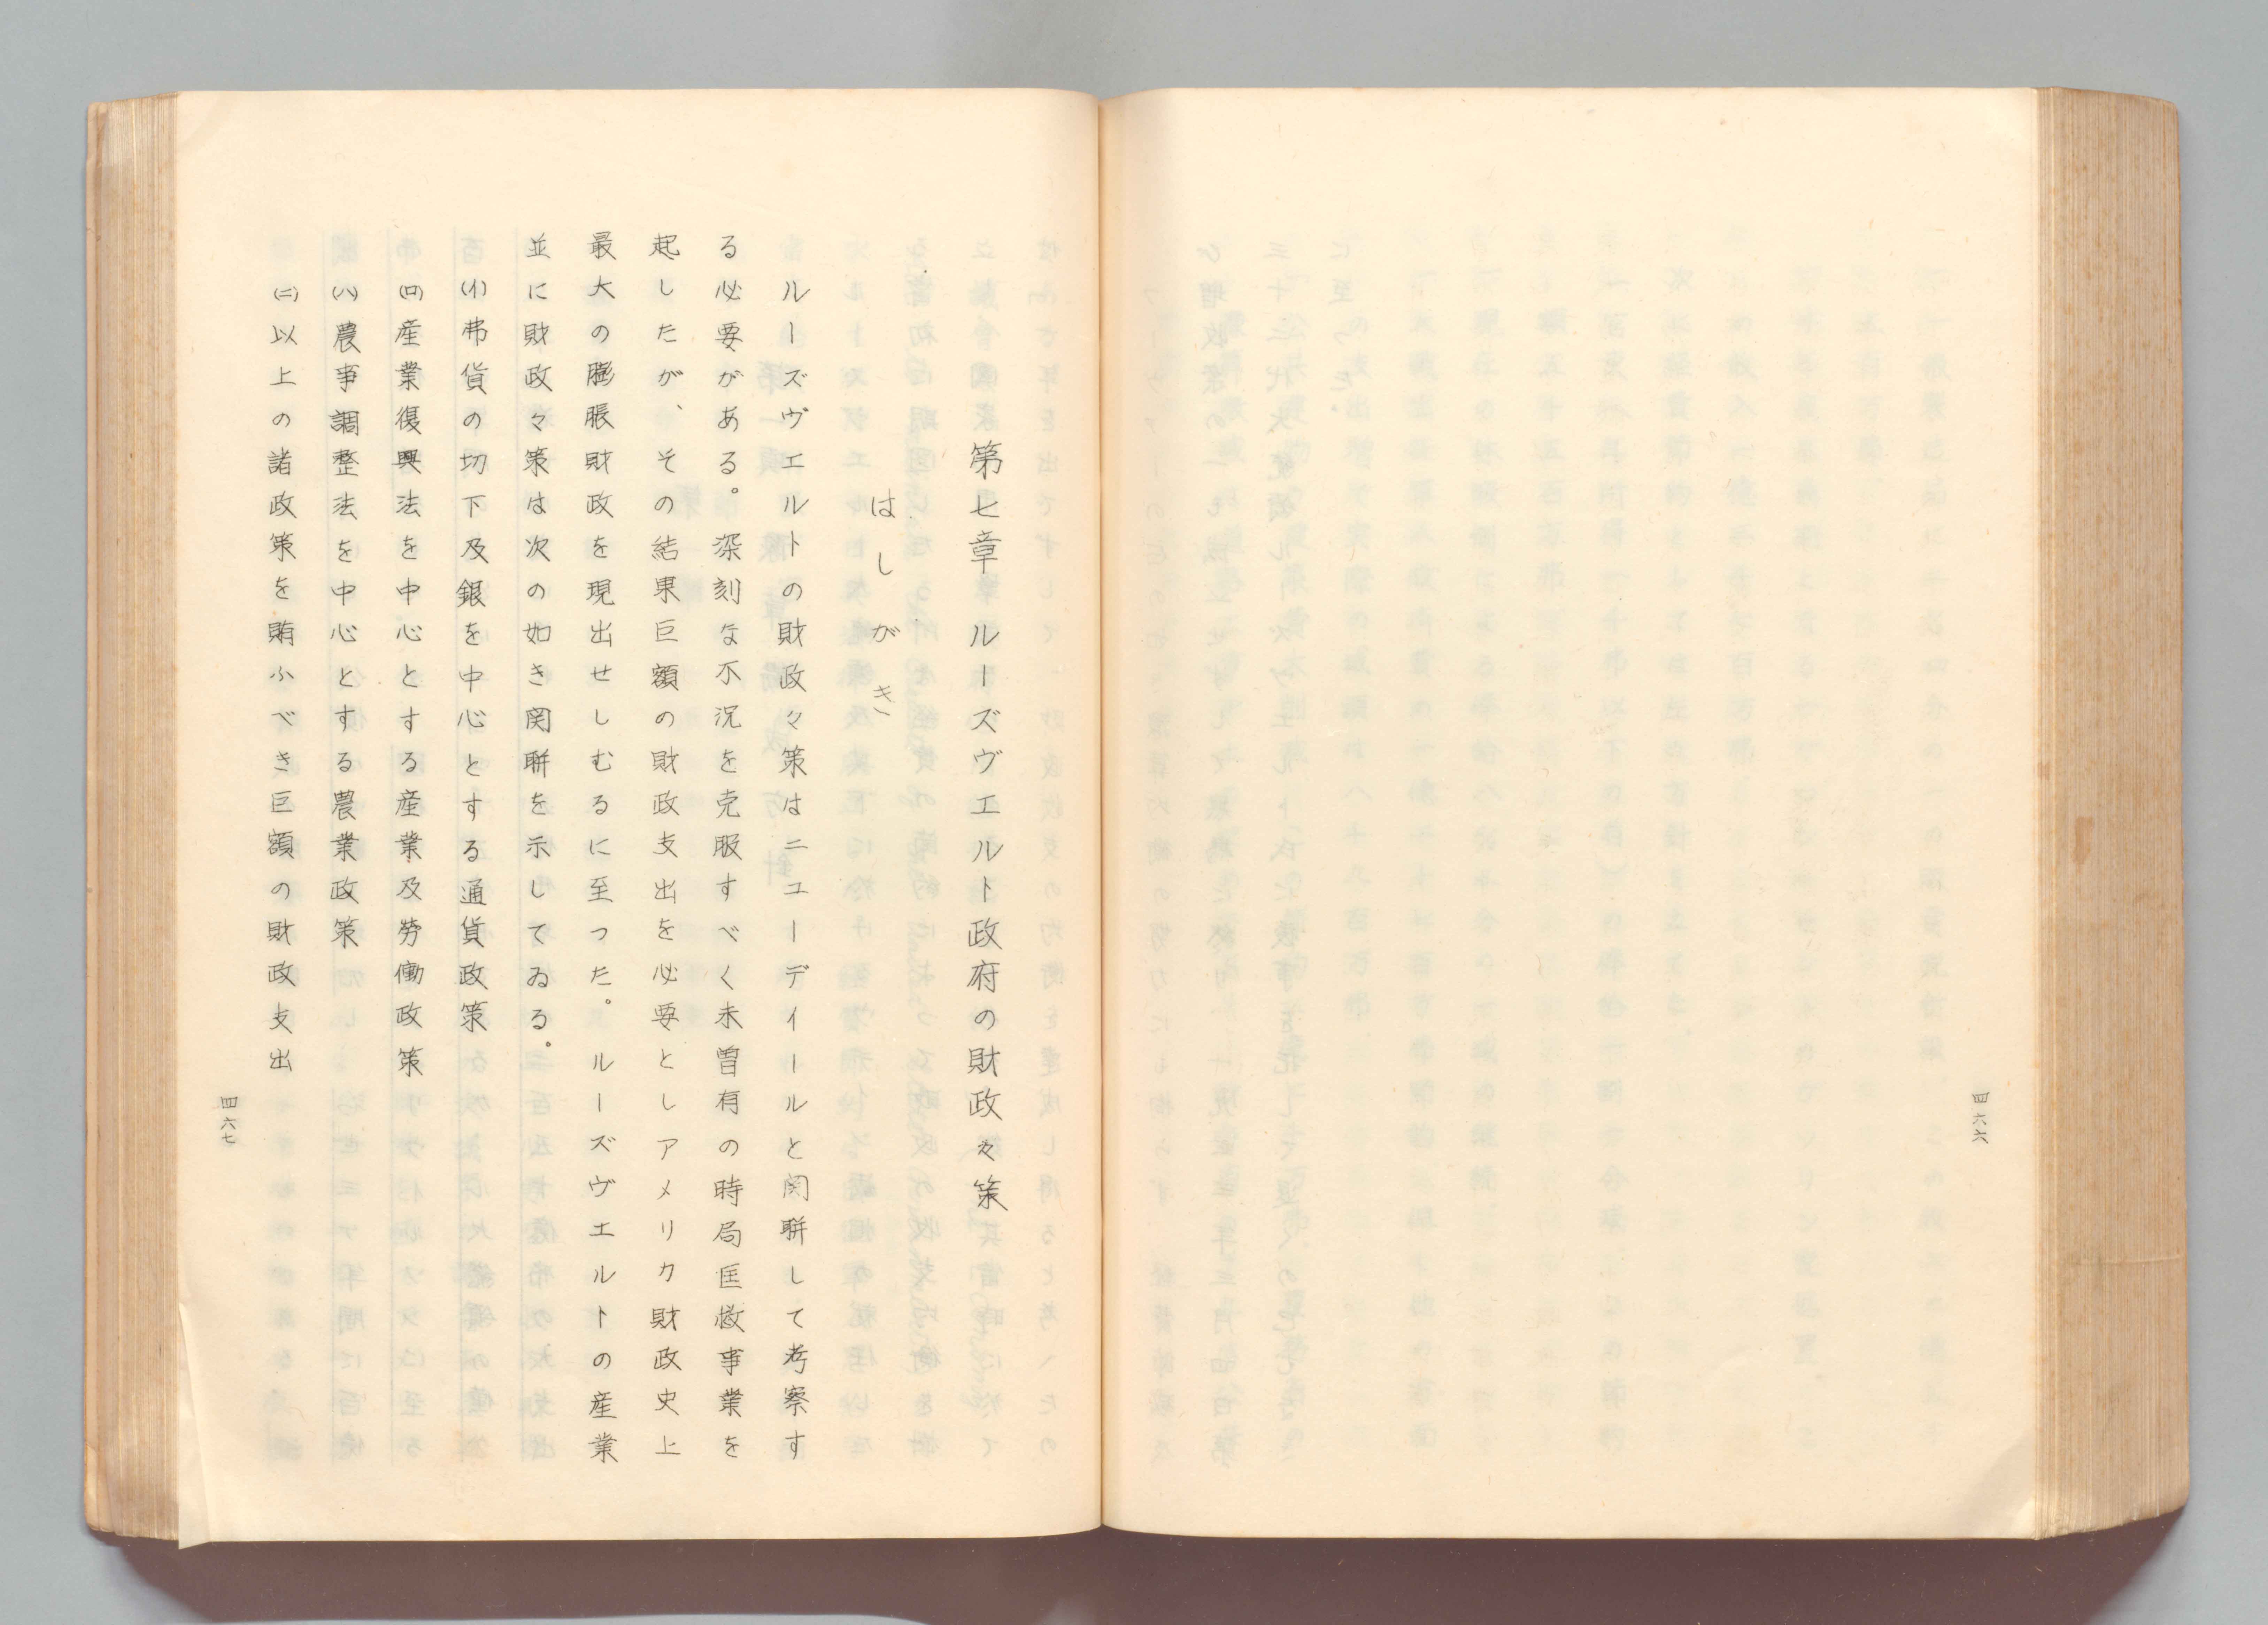 四六六
第七章 ルーズヴエルト政府の財政々策
はしがき
ルーズヴエルトの財政々策はニユーデイールと関聯して考察す
る必要がある。深刻な不況を克服すべく未曽有の時局匡救事業を
起したが、その結果巨額の財政支出を必要としアメリカ財政史上
最大の膨脹財政を現出せしむるに至つた。ルーズヴエルトの産業
並に財政々策は次の如き関聯を示してゐる。
(イ)弗貨の切下及銀を中心とする通貨政策
(ロ)産業復興法を中心とする産業及労働政策
(ハ)農事調整法を中心とする農業政策
(ニ)以上の諸政策を賄ふべき巨額の財政支出
四六七